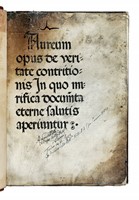 Aureum
opus de veri
tate contritio
nis In quo mi
rifica documẽta
eterne salutis
aperiuntur